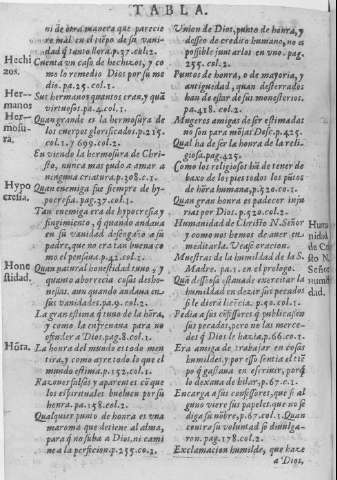 TABLA.
ni de otra manera que parecio
re mal en el tiẽpo de su vani-
dad q̃ tanto llora.p.37.col.2.
Hechi
zos.
Cuenta vn caso de hechizos, y co
mo lo remedio Dios por su me
dio.pa.25.col.1.
Her-
manos
Sus hermanos quantos eran, y quã
virtuosos.pa.4.col.1.
Her-
mosu-
ra.
Quan grande es la hermosura de
los cuerpos glorificados.p.215.
col.1.y 699.col.2.
En viendo la hermosura de Chri-
sto, nunca mas pudo a amar a
ninguna criatura.p.208.c.1.
Hypo
cresia.
Quan enemiga fue siempre de hy-
pocresia.pag.37.col.1.
Tan enemiga era de hypocresia y
fingimiento, q̃ quando andaua
en su vanidad desengaño a su
padre, que no era tan buena co
mo el pensaua.p.42.col.1.
Hone
stidad.
Quan natural honestidad tuuo, y
quanto aborrecia cosas desho-
nestas, aun quando andaua en
sus vanidades.pa.9.col.2.
La gran estima q̃ tuuo de la hõra,
y como la enfrenaua para no
ofender a Dios.pag.8.col.1.
Hõra.
La honra del mundo es todo men
tira, y como a y re todo lo que el
mundo estima.p.152.col.1.
Razones falsas y aparentes cõ que
los espirituales bueluen por su
honra.pa.158.col.2.
Qualquier punto de honra es vna
maroma que detiene al alma,
para q̃ no suba a Dios, ni cami
ne a la perficion.p.255.co.1.
Vnion de Dios, punto de honra, y
desseo de credito humano, no es
possible juntarlos en vno.pag.
255.col.2.
Puntos de honra, o de mayoria, y
antiguedad, quan desterrados
han de estar de sus monesterios.
pa.418.col.2.
Mugeres amigas de ser estimadas
no son para mõjas Desc.p.425.
Qual ha de ser la honra de la reli-
giosa.pag.425.
Como los religiosos hã de tener de
baxo de los pies todos los pũtos
de hõra humana,p.520.co.1.
Quan gran honra es padecer inju
rias por Dios.p.520.col.2.
Huma
nidad
de Cri
sto N.
Señor
Humanidad de Christo N. Señor
y como nos hemos de amar en
meditarla. Vease oracion.
humil
dad.
Muestras de la humildad de la S.
Madre. pa.1. en el prologo.
Quã desseosa estaua de exercitar la
humildad en dezir sus pecados
si le dierã licẽcia. p.40.col.1.
Pedia a sus cõfessores q̃ publicassen
sus pecados, pero no las merce-
des q̃ Dios le hazia.p.66.co.1.
Era amiga de trabajar en cosas
humildes, y por esso sentia el tiẽ
po q̃ gastaua en escreuir, porq̃
lo dexaua de hilar,p.67.c.1.
Encarga a sus confessores, que si al
guno viere sus papeles que no se
diga su nõbre,p.67.col.1.Quan
contra su voluntad se diuulga-
ron.pag.178.col.2.
Exclamacion humilde, que haze
a Dios,